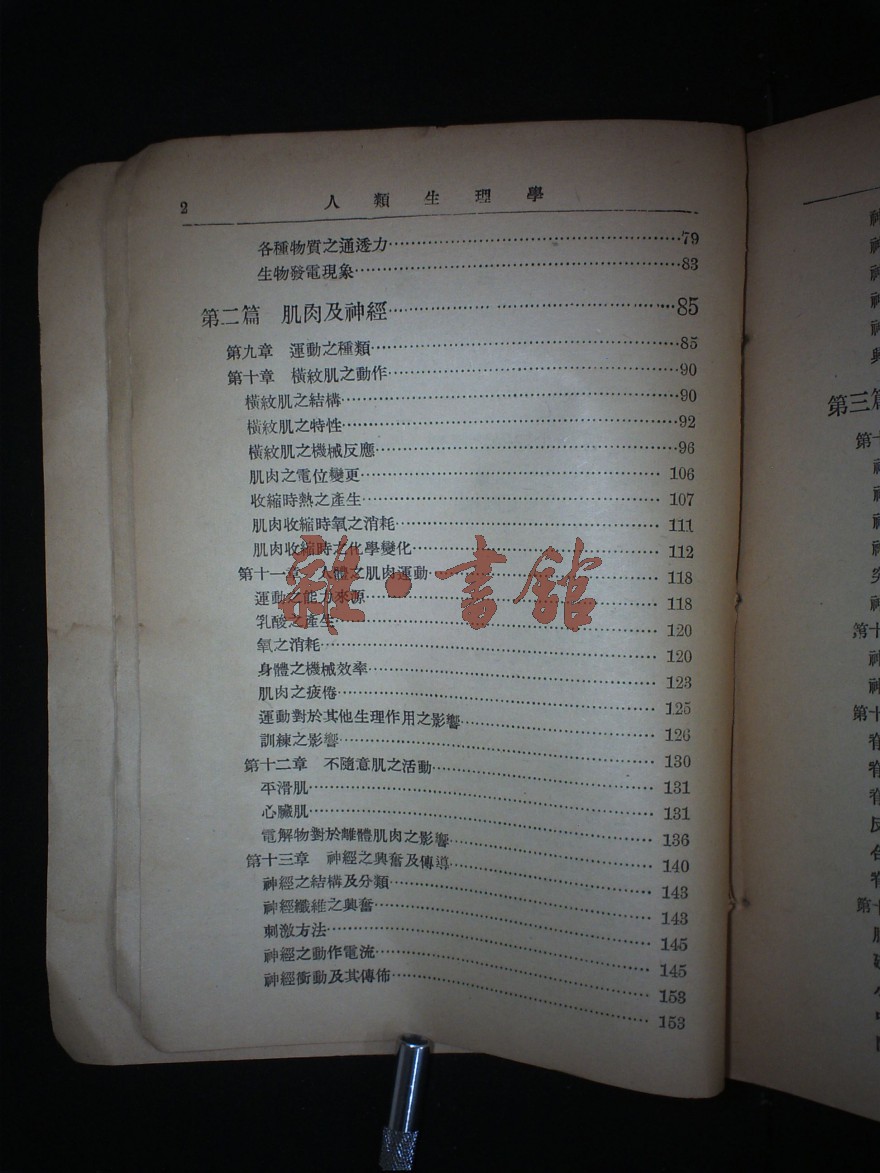 2 人類生理學
各種物質之通透力……79
生物發電現象……83
第二篇 肌肉及神經……85
第九章 運動之種類……85
第十章 橫紋肌之動作……90
橫紋肌之結構……90
橫紋肌之特性……92
橫紋肌之機械反應……96
肌肉之電位變更……106
收縮時熱之產生……107
肌肉收縮時氧之消耗……111
肌肉收縮時之化學變化……112
第十一章 人體之肌肉運動……118
運動之能力來源……118
乳酸之產生……120
氧之消耗……120
身體之機械效率……123
肌肉之疲倦……125
運動對於其他生理作用之影響……126
訓練之影響……130
第十二章 不隨意肌之活動……131
平滑肌……131
心臟肌……136
電解物對於離體肌肉之影響……140
第十三章 神經之興奮及傳導……143
神經之結構及分類……143
神經纖維之興奮……145
刺激方法……145
神經之動作電流……153
神經衝動及其傳佈……153
雜·書館
第三篇